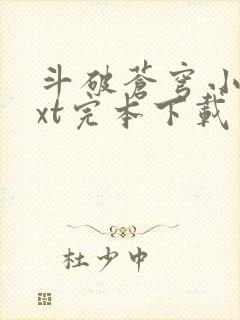 斗破苍穹小
xt完本下载
杜少中